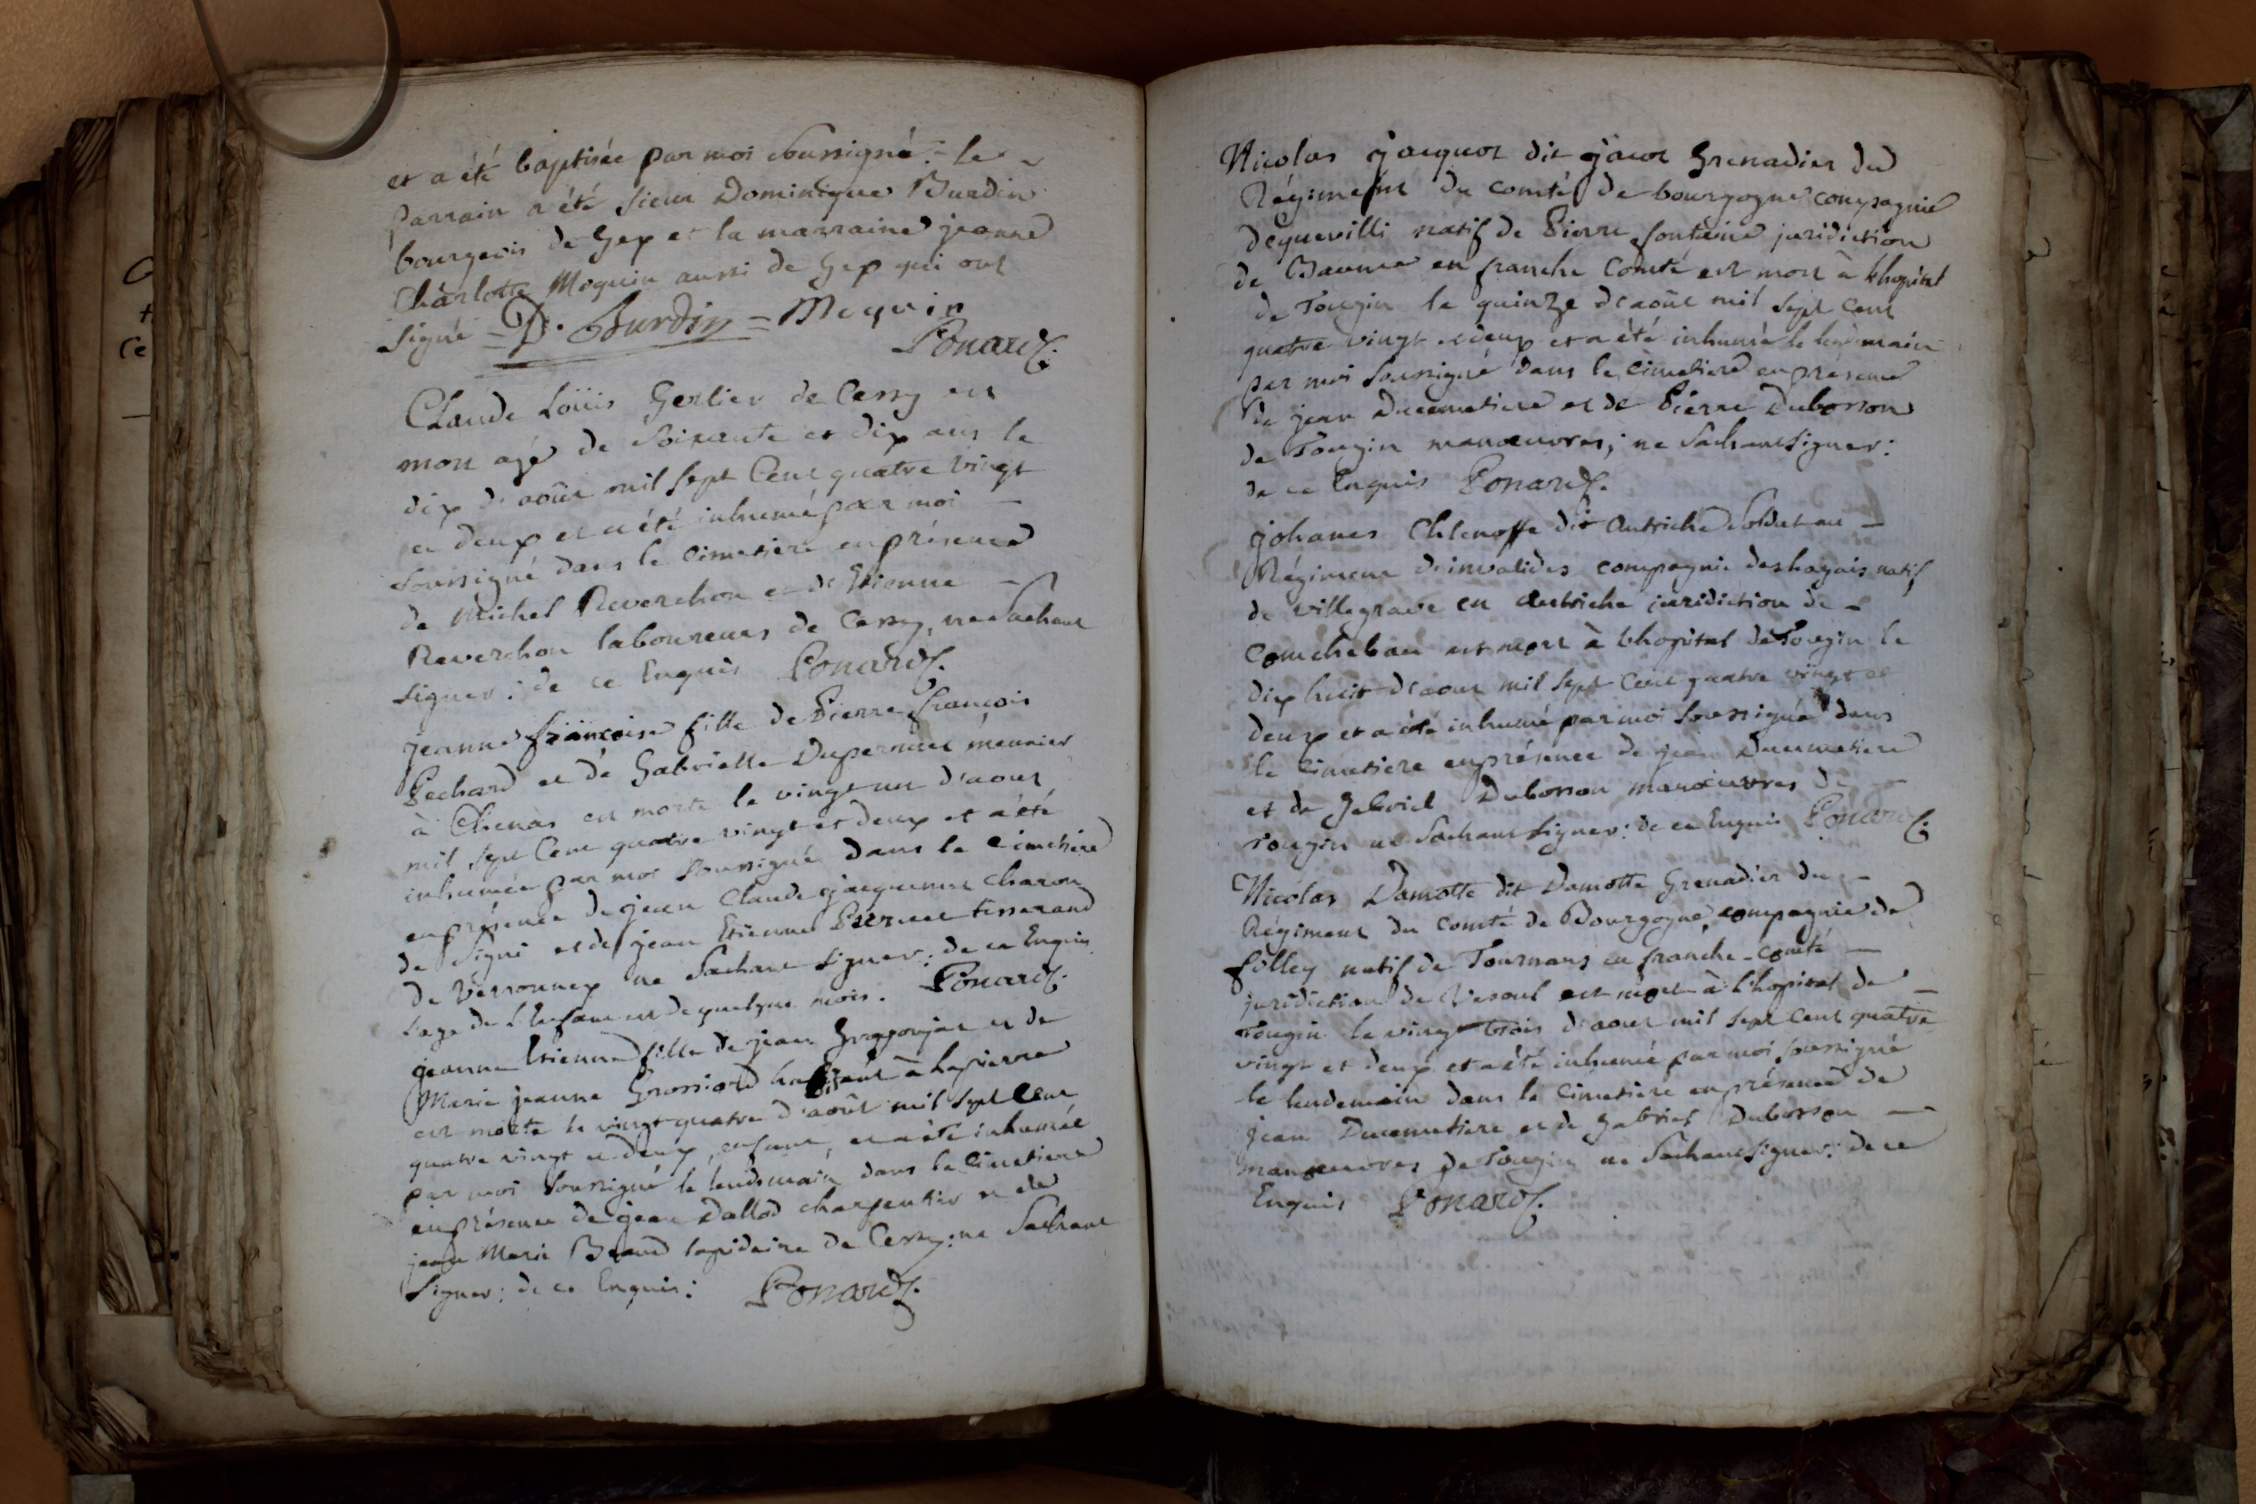 et a été baptisée par moi soussigné : le
parrain a été sieur Dominique Burdin
bourgeois de Gex et la marraine jeanne
Charlotte Moquin aussi de Gex qui ont
signé = D. Burdin = Moquin
Ponard
Claude Loüis Gerlier de Cessy est
mort agé de soixante et dix ans le
dix d'août mil sept cent quatre vingt
et deux et a été inhumé par moi
soussigné dans le cimetiere en présence
de Michel Reverchon et de Etienne
Reverchon laboureurs de Cessy, ne sachant
signer : de ce Enquis Ponard.
jeanne françoise fille de Pierre françois
Pechard et de Gabrielle Dupernut meunier
à Chenas est morte le vingt un d'aout
mil sept cent quatre vingt et deux et a été
inhumée par moi soussigné dans le cimetiere
en présence de jean Claude jacquemet charon
de Signi et de jean Etienne tisserand
de Versonnex ne sachant signer : de ce Enquis
l'age de l'Enfant est de quelque mois. Ponard.
jeanne Etienne fille de jean et de
Marie jeanne Grossiord habitant à lapierre
est morte le vingt quatre d'août mil sept cent
quatre vingt et deux, enfant, et a été inhumée
par moi soussigné le lendemain dans le cimetiere
en présence de jean Dallod charpentier et de
jean Marie lapidaire de Cessy : ne sachant
signer : de ce Enquis : Ponard.
ce
Nicolas jacquot dit jacot Grenadier du
Régiment du comté de bourgogne compagnie
dequevilli natif de Pierre fontaine juridiction
de Baume en franche Comté est mort à l'hopital
de Tougin le quinze d'août mil sept cent
quatre vingt et deux et a été inhumé le lendemain
par moi soussigné dans le cimetiere en présence
de jean Ducimetiere et de Pierre Dubosson
de Tougin manœuvres ; ne sachant signer :
de ce Enquis Ponard.
johanes dit Autriche soldat au
Régiment d'invalides compagnie deshayais natif
de villegrave en Autriche juridiction de
est mort à l'hopital de Tougin le
dix huit d'aout mil sept cent quatre vingt et
deux et a été inhumé par moi soussigné dans
le cimetiere en présence de jean Ducimetiere
et de Gabriel Dubosson manœuvres de
Tougin ne sachant signer : de ce Enquis Ponard.
Nicolas Damotte dit Damotte Grenadier du
Régiment du Comté de Bourgogne compagnie de
folley natif de Tournans en franche-comté
juridiction de Vesoul est mort à l'hopital de
Tougin le vingt trois d'aout mil sept cent quatre
vingt et deux et a été inhumé par moi soussigné
le lendemain dans le cimetiere en présence de
jean Ducimetiere et de Gabriel Dubosson
manœuvres de Tougin ne sachant signer : de ce
Enquis Ponard.